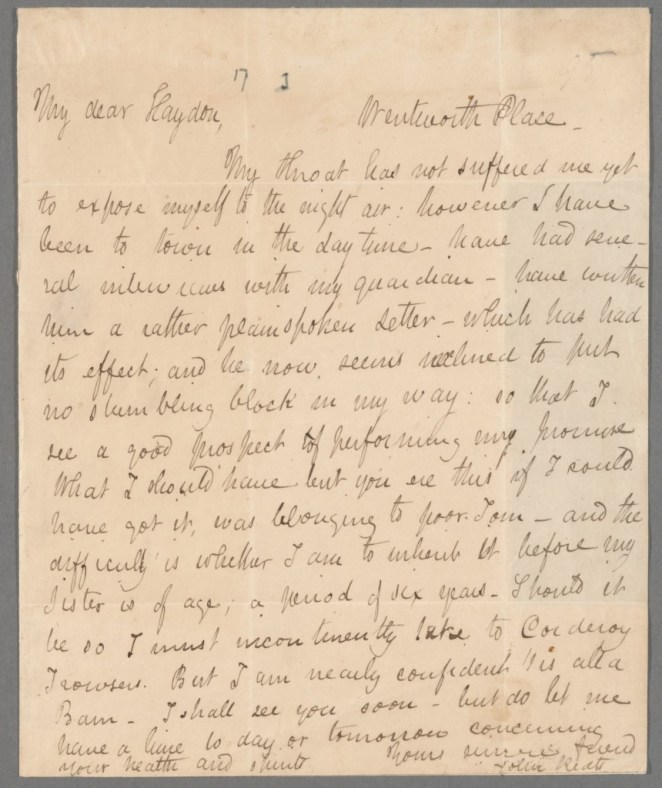 17 J
My dear Haydon, Wentworth Place -
My throat has not suffered me yet
to expose myself to the night air: however I have
been to town in the day time - have had seve-
ral interviews with my guardian - have written
him a rather plain spoken Letter - which has had
its effect; and he now seems inclined to put
no stumbling block in my way: so that I
see a good prospect of performing my promise
What I should have lent you ere this if I could
have got it, was belonging to poor Tom - and the
difficulty is whether I am to inherit it before my
Sister is of age; a period of six years - Should it
be so I must incontinently take to Corderoy
Trowsers. But I am nearly confident 'tis all a
Bam - I shall see you soon - but do let me
have a line to day or tomorrow concerning
your health and spirits Yours sincere friend
John Keats